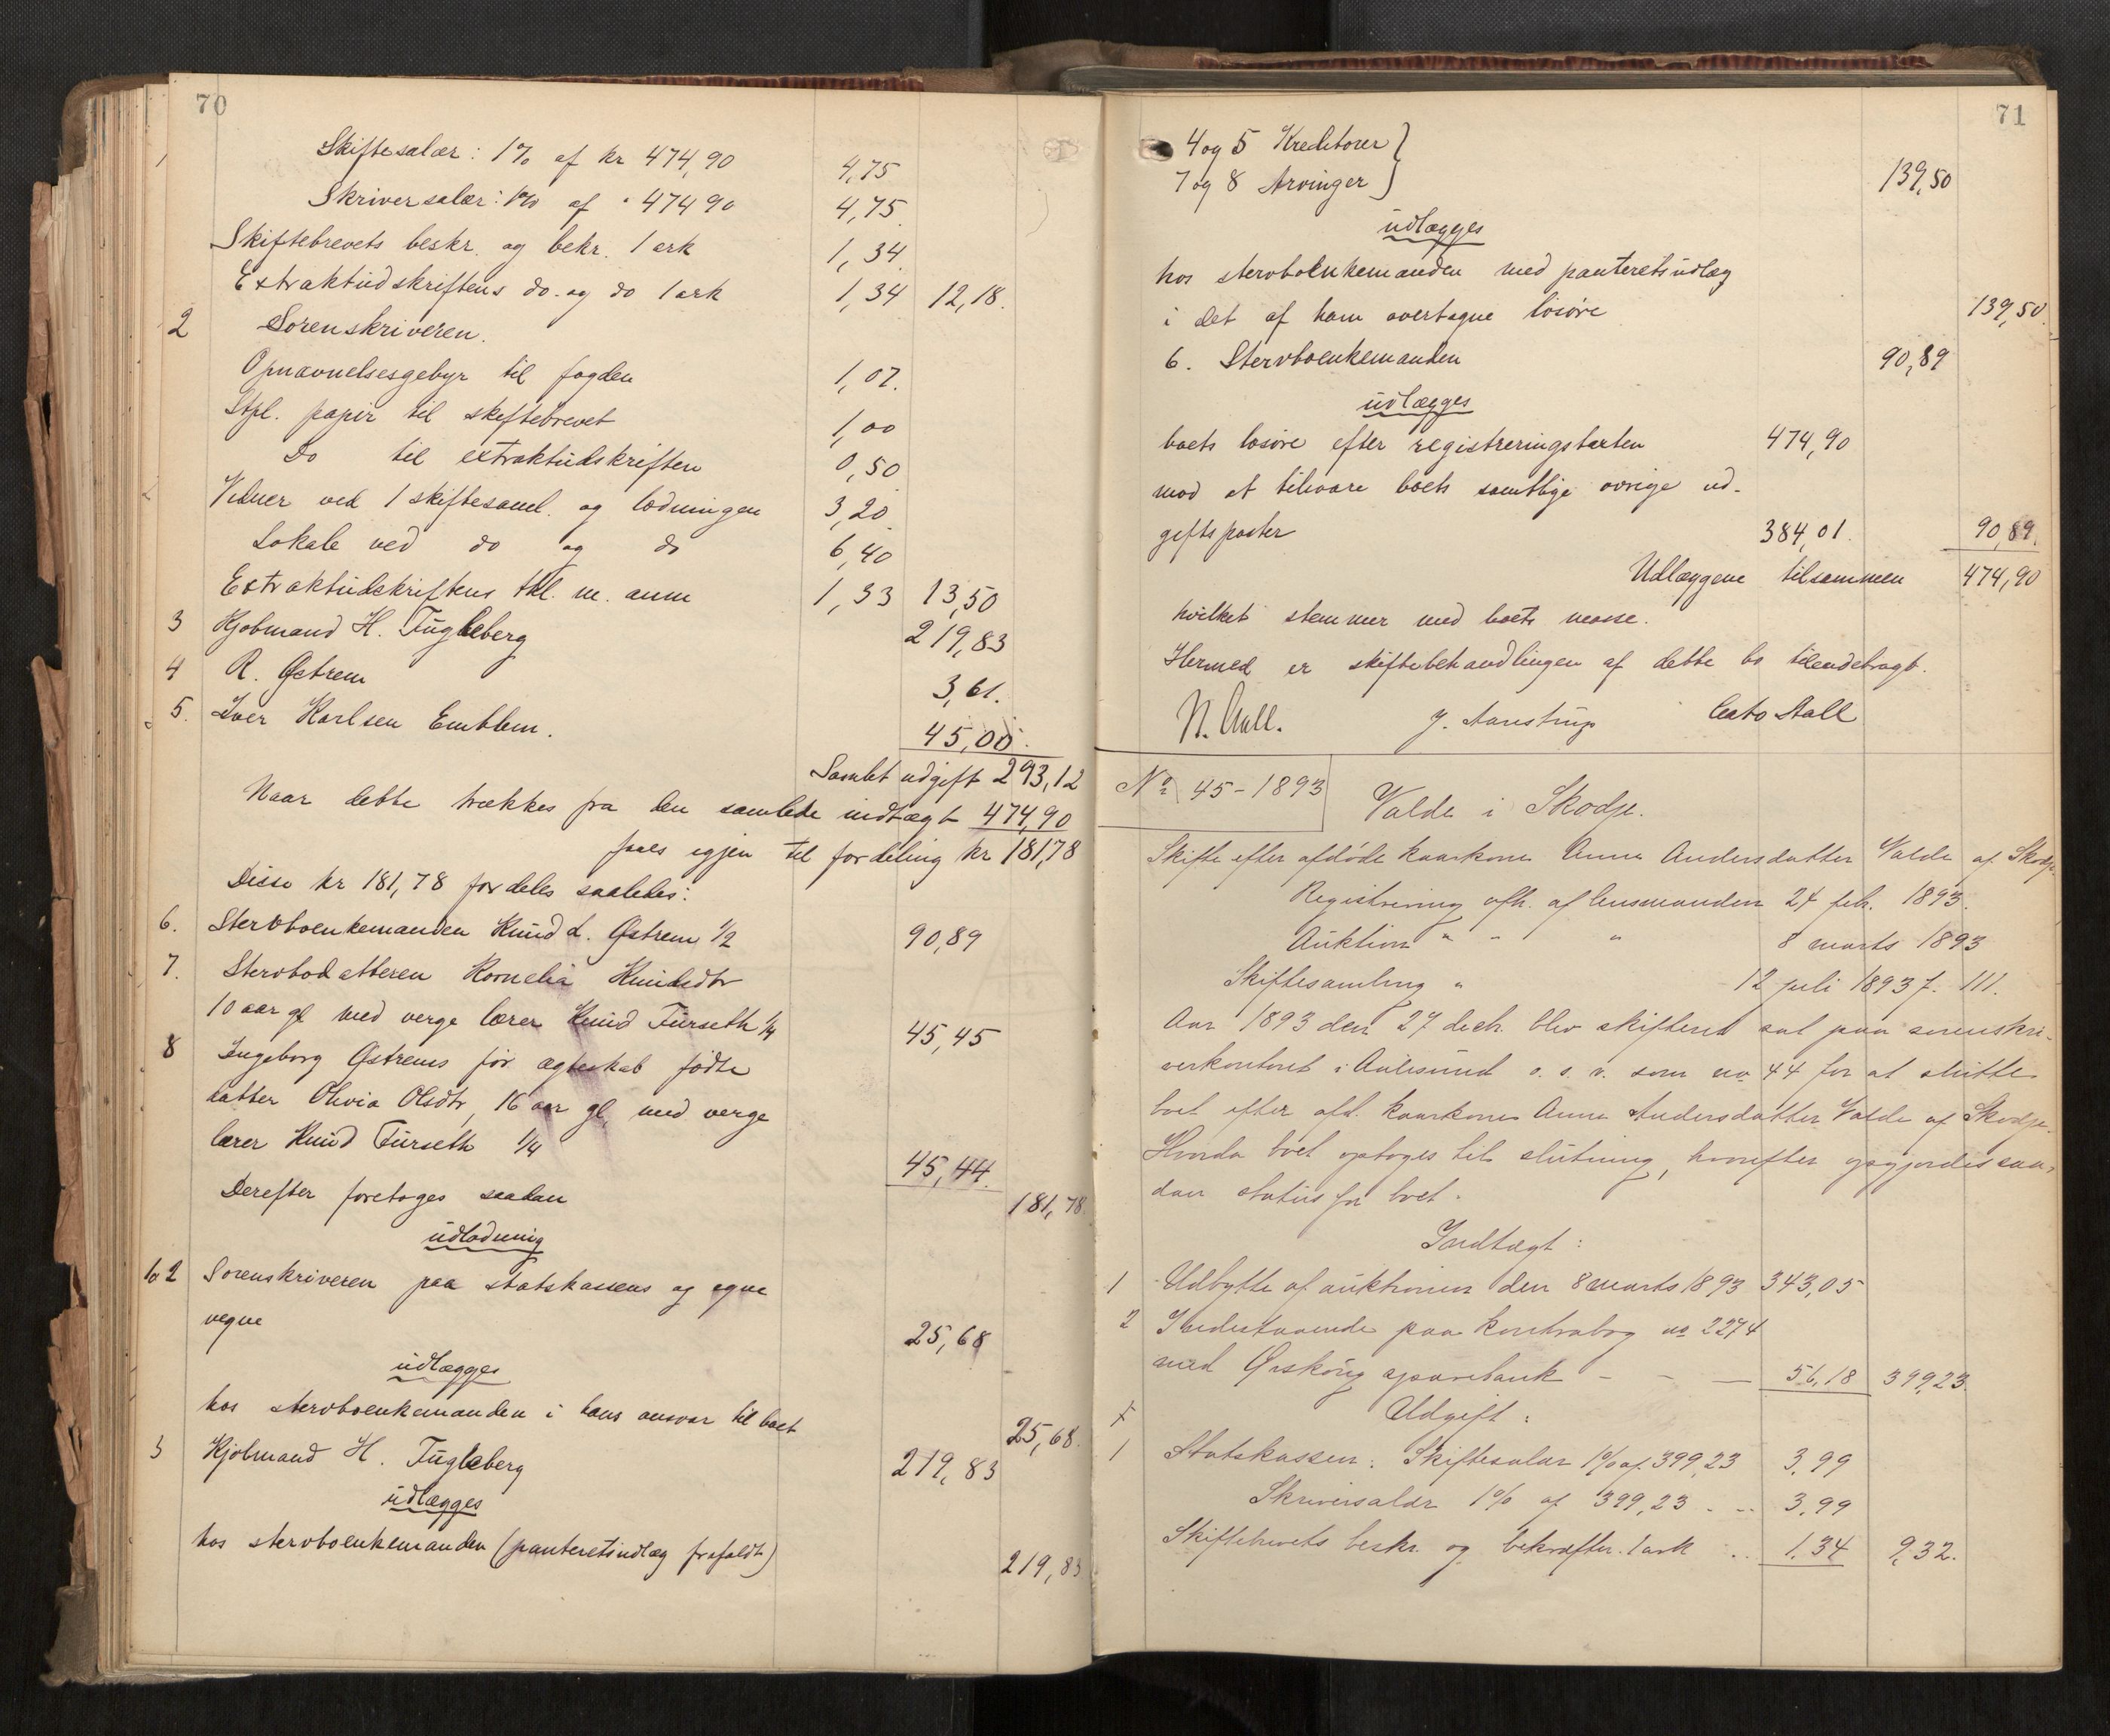 70
Skiftesalær: 1% af kr 474,90 4,75
Skriversalær: 1% af " 474 90 4,75
Skiftebrevets beskr. og bekr. 1 ark 1,34
Extraktudskriftens do. og do 1 ark 1,34 12,18.
2 Sorenskriveren.
Opnævnelsesgebyr til fogden 1,07.
Stpl. papir til skiftebrevet 1,00
Do til extraktudskriften 0,50
Vidner ved 1 skiftesaml. og lodningen 3,20
Lokale ved do og do 6,40
Extraktudskriftens tkl. m. anm 1,33 13,50
3 Kjøbmand H. Fugleberg 219,83
4 R. Østrem 3,61.
5. Iver Karlsen Emblem. 45,00.
Samlet udgift 293,12
Naar dette trækkes fra den samlede indtægt 474,90
faaes igjen til fordeling kr 181,78
Disse kr 181,78 fordeles saaledes:
6. Stervboenkemanden Knud L. Østrem 1/2 90,89
7. Stervbodatteren Kornelia Knudsdtr
10 aar gl med verge lærer Knud Furseth 1/4 45,45
8 Ingeborg Østrems før ægteskab fødte
datter Olivia Olsdtr, 16 aar gl, med verge
lærer Knud Furseth 1/4 45,44.
Derefter foretoges saadan 181,78.
udlodning
1 o 2 Sorenskriveren paa statskassens og egne
vegne 25,68
udlægges
hos stervboenkemanden i hans ansvar til boet 25,68.
3 Kjøbmand H. Fugleberg 219,83
udlægges
hos stervboenkemanden (panteretsudlæg frafaldt) 219,83
71
4 og 5 Kreditorer }
7 og 8 Arvinger } 139,50
udlægges
hos stervboenkemanden med panteretsudlæg
i det af ham overtagne løsøre 139,50.
6. Stervboenkemanden 90,89
udlægges
boets løsøre efter registreringstaxten 474,90
mod at tilsvare boets samtlige øvrige ud-
giftsposter 384,01. 90,89.
Udlæggene tilsammen 474,90
hvilket stemmer med boets masse.
Hermed er skiftebehandlingen af dette bo tilendebragt.
N. Aall. J. Aarestrup Cato Aall
No 45-1893
Valde i Skodje.
Skifte efter afdøde kaarkone Anne Andersdatter Valde af Skodje.
Registrering afh. af lensmanden 24 feb. 1893.
Auktion " - " 8 marts 1893
Skiftesamling " 12 juli 1893 f. 111.
Aar 1893 den 27 decb. blev skifteret sat paa sorenskri-
verkontoret i Aalesund o. s. v. som no 44 for at slutte
boet efter afd. kaarkone Anne Andersdatter Valde af Skodje.
Hvorda boet optoges til slutning, hvorefter opgjordes saa-
dan status for boet.
Indtægt:
1 Udbytte af auktionen den 8 marts 1893 343,05
2 Indestaaende paa kontrabog no 2274
med Ørskoug sparebank - - — 56,18 399,23.
Udgift:
1 Statskassen: Skiftesalær 1% af 399,23 3,99
Skriversalær 1% af 399,23 - .. 3,99
Skiftebrevets beskr. og bekræfter. 1 ark .. 1,34 9,32.